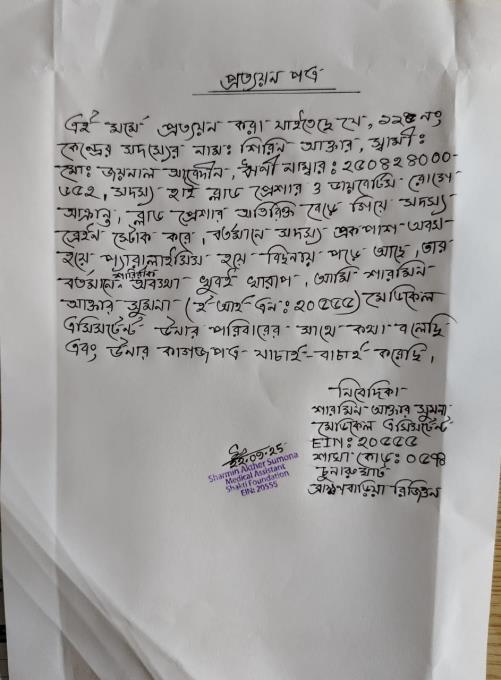 প্রত্যয়ন পত্র
এই মর্মে প্রত্যয়ন করা যাইতেছে যে, ১২৫ নং
কেন্দ্রের সদস্যের নাম: শিরিন আক্তার, স্বামী:
মো: জয়নাল আবেদীন, ঋণী নাম্বার: ২৫০৪২৪000-
৬৫২, সদস্য হাই ব্লাড প্রেশার ও ডায়বেটিস রোগে
আক্রান্ত, ব্লাড প্রেশার অতিরিক্ত বেড়ে গিয়ে সদস্য
ব্রেইন স্টোক করে, বর্তমানে সদস্য একপাশ অবস
হয়ে প্যারালাইসিস হয়ে বিছনায় পড়ে আছে, তার
বর্তমানে শারিরীক অবস্থা খুবই খারাপ, আমি শারমিন
আক্তার সুমনা (ই আই এন: ২০৫৫৫) মেডিকেল
এসিসটেন্ট উনার পরিবারের সাথে কথা বলেছি
এবং উনার কাগজপত্র যাচাই-বাচাই করেছি,
নিবেদিকা
শারমিন আক্তার সুমনা
মেডিকেল এসিসটেন্ট
EIN: ২০৫৫৫
শাখা কোড: ০৫৭৪
চুনারুঘাট
ব্রাহ্মণবাড়িয়া রিজিওন
22.09.25
Sharmin Akther Sumona
Medical Assistant
Shakti Foundation
EIN: 20555